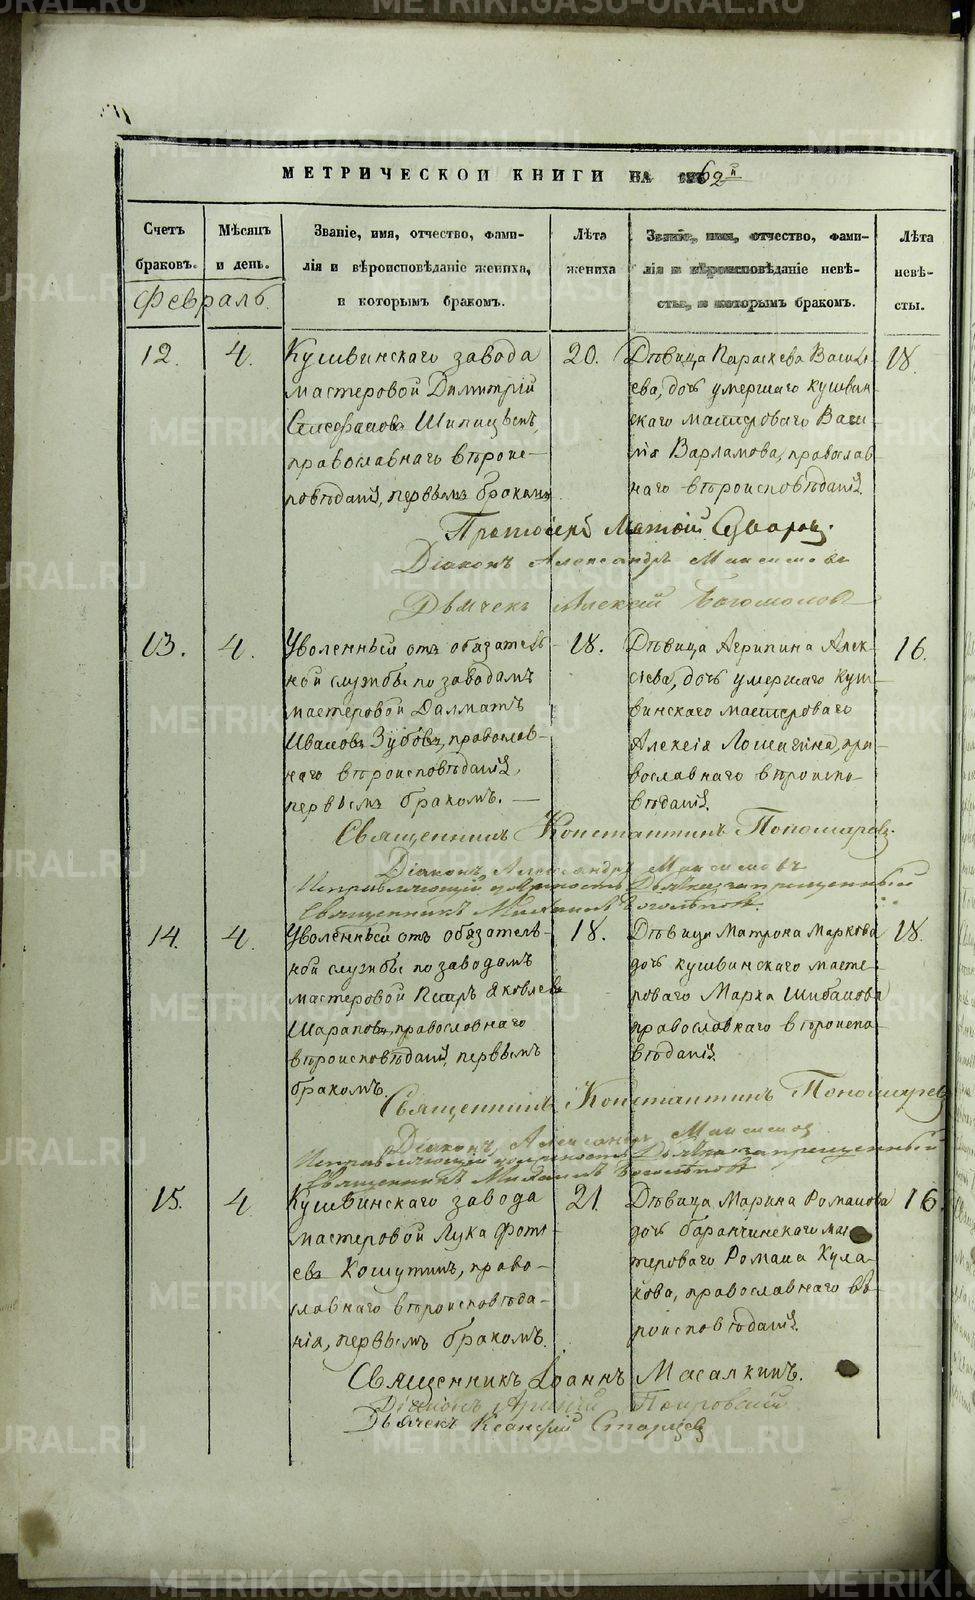 МЕТРИЧЕСКОЙ КНИГИ НА 1862й
Счетъ
браковъ.
Мѣсяцъ
и день.
Званіе, имя, отчество, фами-
лія и вѣроисповѣданіе жениха,
и которымъ бракомъ.
Лѣта
жениха
Званіе, имя, отчество, фами-
лія и вѣроисповѣданіе невѣ-
сты, и которымъ бракомъ.
Лѣта
невѣ-
сты.
Февраль
12.
4.
Кушвинскаго завода
мастеровой Димитрій
Ксенофановъ Шипицынъ,
православнаго вѣроис-
повѣданія, первымъ бракомъ
20.
Дѣвица Параскева Василь-
ева, дочь умершаго кушвин-
скаго мастероваго Васи-
лія Варламова, православ-
наго вѣроисповѣданія.
18.
Протоіерей
Діаконъ Александръ
Дьячекъ Алексій Богомоловъ
13.
4.
Уволенный отъ обязатель-
ной службы по заводамъ
мастеровой Далматъ
Ивановъ Зубовъ, православ-
наго вѣроисповѣданія,
первымъ бракомъ.
18.
Дѣвица Агрипина Алек-
сіева, дочь умершаго куш-
винскаго мастероваго
Алексія Лошагина, пра-
вославнаго вѣроиспо-
вѣданія.
16.
Священникъ Константинъ Пономаревъ.
Діаконъ Александръ
Исправляющій должность Дьячка запрещенный
Священникъ Михаилъ
14.
4.
Уволенный отъ обязатель-
ной службы по заводамъ
мастеровой Петръ Яковлевъ
Шараповъ, православнаго
вѣроисповѣданія, первымъ
бракомъ.
18.
Дѣвица Матрона Маркова
дочь кушвинскаго масте-
роваго Марка Шибанова
православнаго вѣроиспо-
вѣданія.
18.
Священникъ Константинъ Пономаревъ
Діаконъ Александръ
Исправляющій должность Дьячка запрещенный
Священникъ Михаилъ
15.
4.
Кушвинскаго завода
мастеровой Лука Фоті-
евъ Кошутинъ, право-
славнаго вѣроисповѣда-
нія, первымъ бракомъ.
21.
Дѣвица Марина Романова
дочь баранчинскаго мас-
тероваго Романа Кула-
кова, православнаго вѣ-
роисповѣданія.
16.
Священникъ Іоаннъ Масалкинъ.
Діаконъ
Дьячекъ Старцевъ